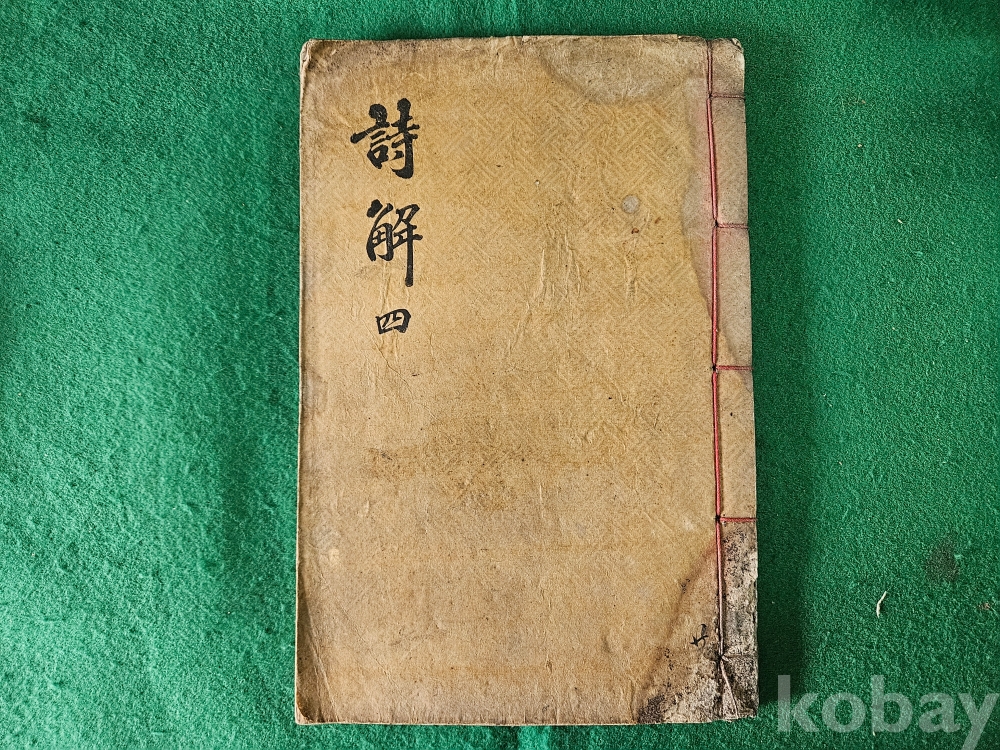 詩解 四
kobay